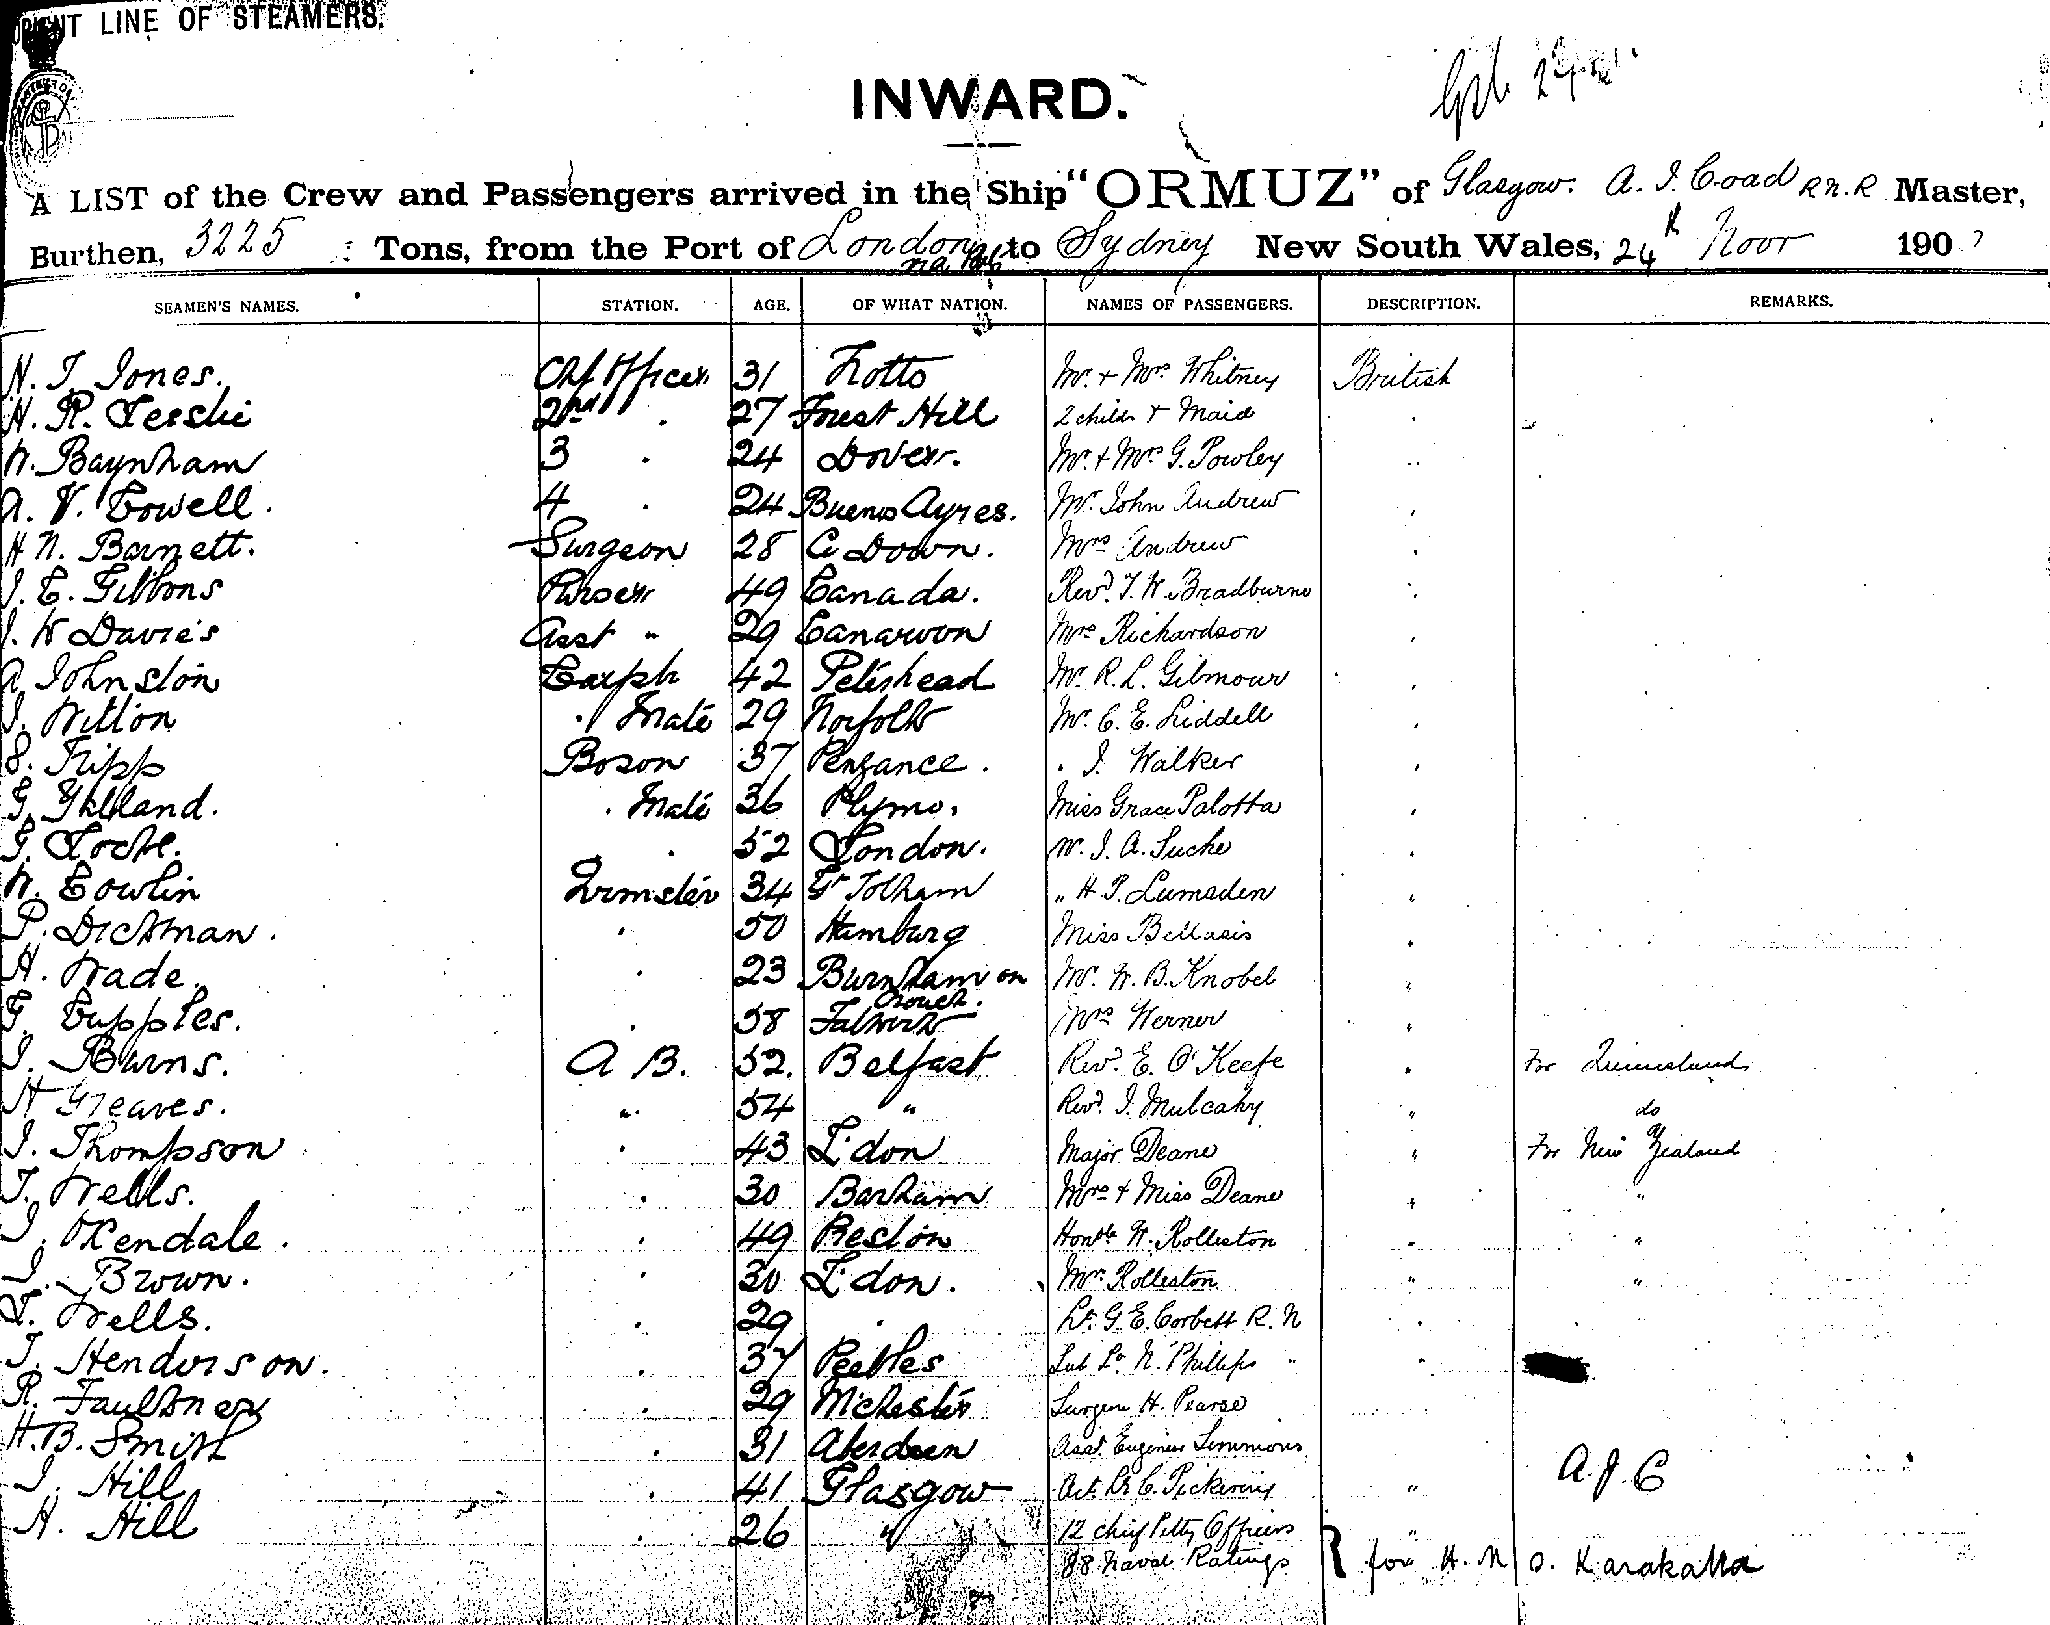 ORIENT LINE OF STEAMERS.
INWARD.
A LIST of the Crew and Passengers arrived in the Ship "ORMUZ" of Glasgow. A. J. Coad R.N.R Master,
Burthen, 3225 Tons, from the Port of London via to Sydney New South Wales, 24th Novr 190
SEAMEN'S NAMES. STATION. AGE. OF WHAT NATION. NAMES OF PASSENGERS. DESCRIPTION. REMARKS.
N. J. Jones. Chf Officer 31 Notts Mr. + Mrs Whitney British
H. R. Leslie 2nd " 27 Forest Hill 2 childn + Maid "
W. Baynham 3 " 24 Dover. Mr. + Mrs G. Powley "
A. V. Cowell. 4 " 24 Buenos Ayres. Mr. John Andrew "
H. N. Barnett. Surgeon 28 Co Down. Mrs Andrew "
J. E. Gibbons Purser 49 Canada. Revd. T. W. Bradburne "
J. W Davies Asst " 29 Canarvon Mrs Richardson "
A. Johnston Carptr 42 Peterhead Mr. R. L. Gilmour "
J. Witton " Mate 29 Norfolk Mr. C. E. Liddell "
S. Tripp Boson 37 Penzance. " J. Walker "
G. Yelland. " Mate 36 Plymo. Miss Grace Palotta "
G. Locke. " 52 London. Mr. J. A. Suche "
W. Cowlin Qrmster 34 Gt Tolham " H P. Lumsden "
P. Dickman. " 50 Hamburg Miss Bellasis "
H. Wade. " 23 Burnham on Crouch. Mr. W. B. Knobel "
G. Cupples. " 58 Falkirk Mrs Werner "
J. Burns. A B. 52. Belfast Revd. E. O'Keefe " For Queensland
H Greaves. " 54 " Revd. J. Mulcahy " do
J. Thompson " 43 L'don Major Deane " For New Zealand
T. Wells. " 30 Barham Mrs + Miss Deane " "
J. Oxendale. " 49 Preston Honble W. Rolleston " "
J. Brown. " 30 L'don. Mrs Rolleston " "
T. Wells. " 29 " Lt. G. E. Corbett R. N "
T. Henderson. " 37 Peebles Sub Lt. N. Phillips " "
R. Faulkner " 29 M'chester Surgeon H. Pearse
H. B. Smith " 31 Aberdeen Asst. Engineer Simmons
J. Hill " 41 Glasgow Act. Lt C. Pickering " A J C
H. Hill " 26 " 12 chief Petty Officers "
88 Naval Ratings } for H. M S. Karakatta